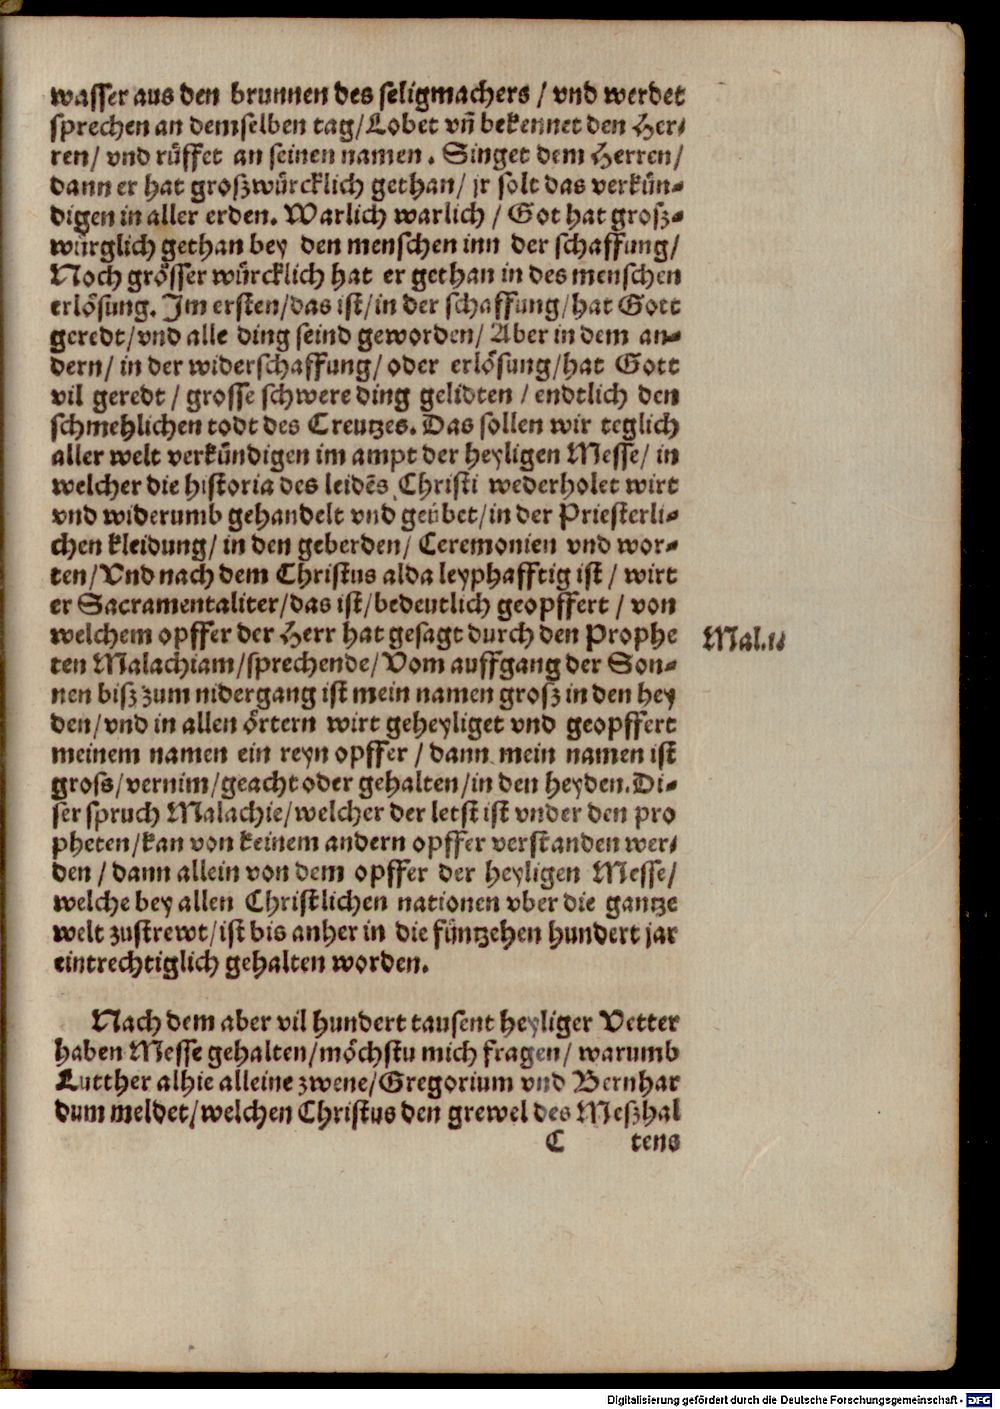 wasser aus den brunnen des seligmachers / vnd werdet
sprechen an demselben tag/Lobet vñ bekennet den Her⸗
ren/ vnd rüffet an seinen namen. Singet dem Herren/
dann er hat groszwürcklich gethan/ jr solt das verkün⸗
digen in aller erden. Warlich warlich / Got hat grosz⸗
würglich gethan bey den menschen inn der schaffung/
Noch grösser würcklich hat er gethan in des menschen
erlösung. Im ersten/das ist/in der schaffung/hat Gott
geredt/vnd alle ding seind geworden/ Aber in dem an⸗
dern/ in der widerschaffung/ oder erlösung/hat Gott
vil geredt / grosse schwere ding gelidten / endtlich den
schmehlichen todt des Creutzes. Das sollen wir teglich
aller welt verkündigen im ampt der heyligen Messe/ in
welcher die historia des leidēs Christi wederholet wirt
vnd widerumb gehandelt vnd geübet/in der Priesterli⸗
chen kleidung/ in den geberden/ Ceremonien vnd wor⸗
ten/Vnd nach dem Christus alda leyphafftig ist / wirt
er Sacramentaliter/das ist/bedeutlich geopffert / von
welchem opffer der Herr hat gesagt durch den Prophe
ten Malachiam/sprechende/Vom auffgang der Son⸗
nen bisz zum nidergang ist mein namen grosz in den hey
den/vnd in allen örtern wirt geheyliget vnd geopffert
meinem namen ein reyn opffer / dann mein namen ist
gross/vernim/geacht oder gehalten/in den heyden.Di⸗
ser spruch Malachie/welcher der letst ist vnder den pro
pheten/kan von keinem andern opffer verstanden wer⸗
den / dann allein von dem opffer der heyligen Messe/
welche bey allen Christlichen nationen vber die gantze
welt zustrewt/ist bis anher in die füntzehen hundert jar
eintrechtiglich gehalten worden.
Mal.1.
Nach dem aber vil hundert tausent heyliger Vetter
haben Messe gehalten/möchstu mich fragen/ warumb
Lutther alhie alleine zwene/Gregorium vnd Bernhar
dum meldet/welchen Christus den grewel des Meszhal
C tens
Digitalisierung gefördert durch die Deutsche Forschungsgemeinschaft - DFG